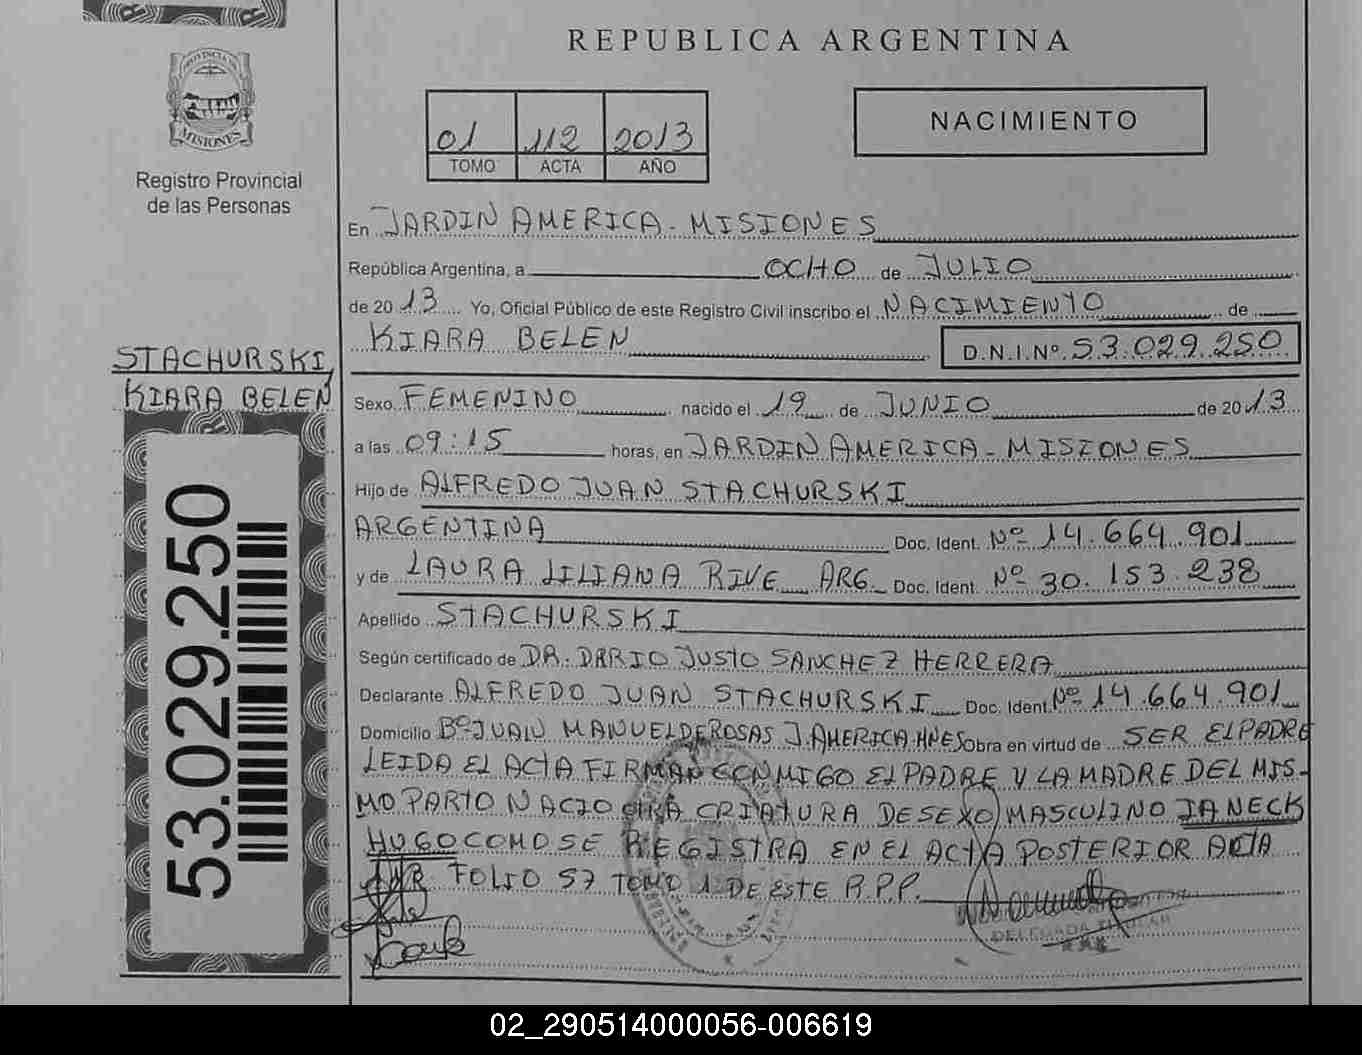 REPUBLICA ARGENTINA
PROVINCIA DE MISIONES
Registro Provincial
de las Personas
01 112 2013
TOMO ACTA AÑO
NACIMIENTO
En JARDIN AMERICA - MISIONES
República Argentina, a OCHO de JULIO
de 2013 Yo, Oficial Público de este Registro Civil inscribo el NACIMIENTO de
KIARA BELEN D.N.I. Nº 53.029.250
STACHURSKI,
KIARA BELEN
53.029.250
Sexo FEMENINO nacido el 19 de JUNIO de 2013
a las 09:15 horas, en JARDIN AMERICA - MISIONES
Hijo de ALFREDO JUAN STACHURSKI
ARGENTINA Doc. Ident. Nº 14.664.901
y de LAURA LILIANA RIVE ARG. Doc. Ident. Nº 30.153.238
Apellido STACHURSKI
Según certificado de DR. DARIO JUSTO SANCHEZ HERRERA
Declarante ALFREDO JUAN STACHURSKI Doc. Ident. Nº 14.664.901
Domicilio Bº JUAN MANUEL DE ROSAS J. AMERICA MNES Obra en virtud de SER EL PADRE
LEIDA EL ACTA FIRMAN CONMIGO EL PADRE Y LA MADRE DEL MIS-
MO PARTO NACIO OTRA CRIATURA DE SEXO MASCULINO IANECK
HUGO COMO SE REGISTRA EN EL ACTA POSTERIOR ACTA
FOLIO 57 TOMO 1 DE ESTE R.P.P.
DELEGADA TITULAR
02_290514000056-006619